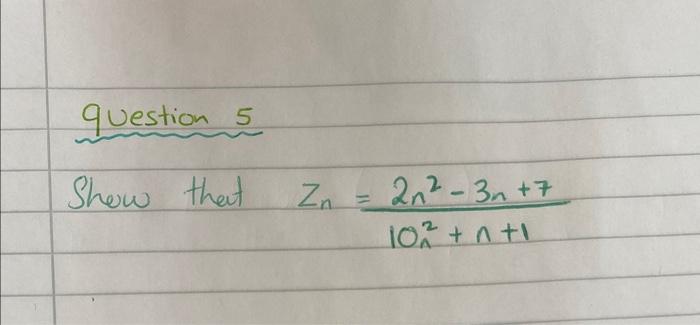 Question 5
Show that Zn = 2n² - 3n + 7
10n² + n + 1